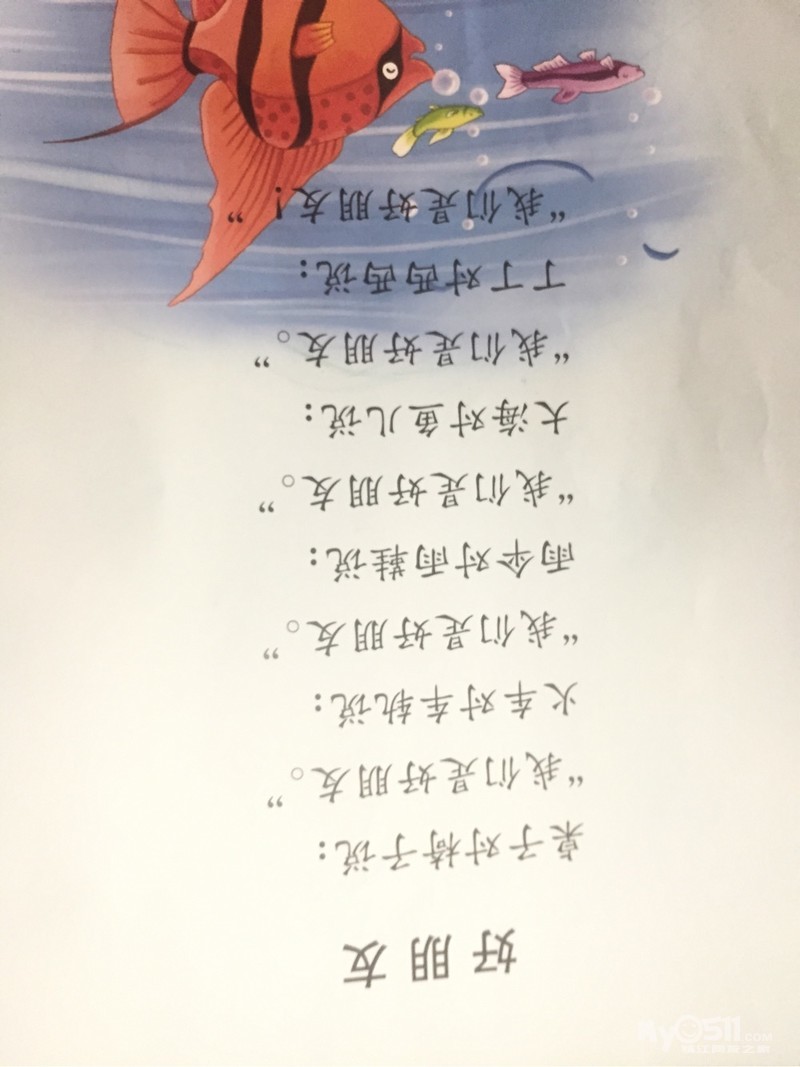 好朋友
桌子对椅子说：
“我们是好朋友。”
火车对车轨说：
“我们是好朋友。”
雨伞对雨鞋说：
“我们是好朋友。”
大海对鱼儿说：
“我们是好朋友。”
丁丁对西西说：
“我们是好朋友！”
My0511.COM